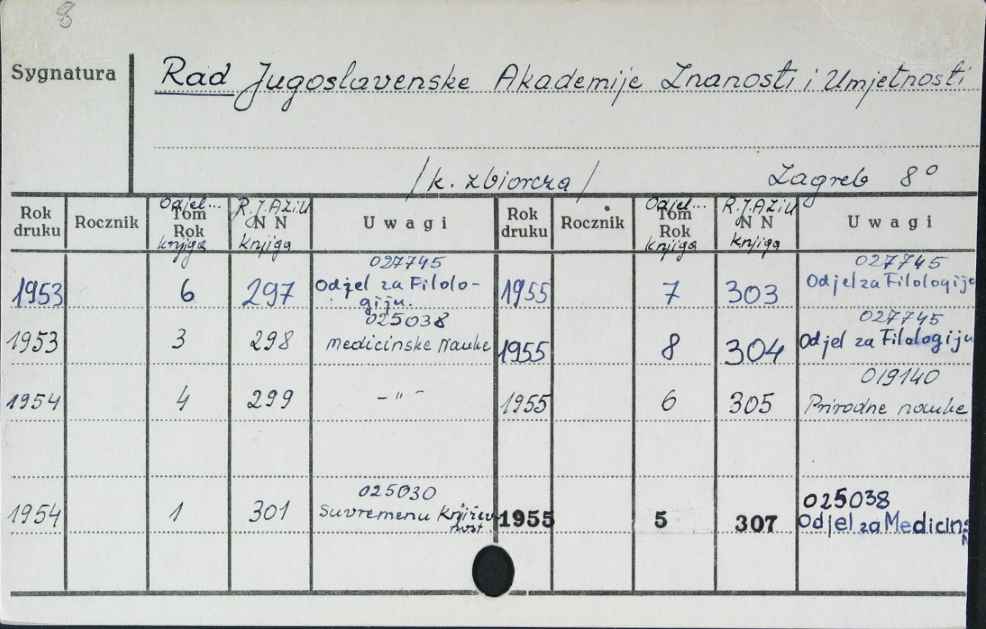 8
Sygnatura
Rad Jugoslavenske Akademije Znanosti i Umjetnosti
/k. zbiorcza/ Zagreb 8°
Rok druku Rocznik Odjel... Tom Rok knjiga R.J.AZiU N N knjiga Uwagi Rok druku Rocznik Odjel... Tom Rok knjiga R.J.AZiU N N knjiga Uwagi
1953 6 297 027745 Odjel za Filolo- giju. 1955 7 303 027745 Odjel za Filologiju
1953 3 298 025038 medicinske Nauke 1955 8 304 027745 Odjel za Filologiju
1954 4 299 -"- 1955 6 305 019140 Prirodne nauke
1954 1 301 025030 Suvremenu Književ nost 1955 5 307 025038 Odjel za Medicins